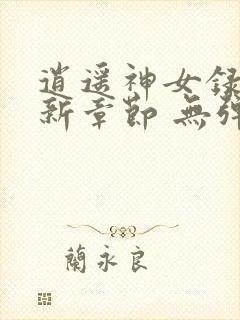 逍遥神女録
新章節 無弹
蘭永良